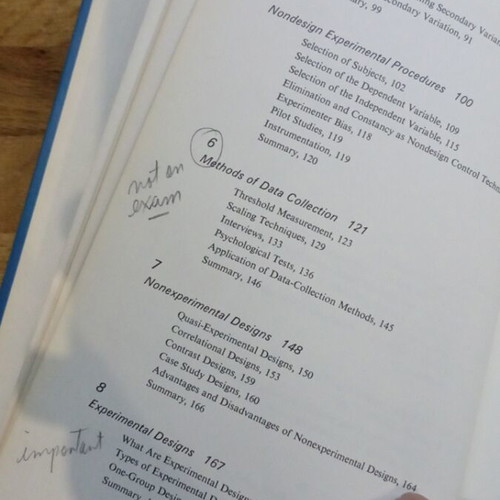 Secondary
Secondary Variation, 91
99
Nondesign Experimental Procedures 100
Selection of Subjects, 102
Selection of the Dependent Variable, 109
Selection of the Independent Variable, 115
Elimination and Constancy as Nondesign Control
Experimenter Bias, 118
Pilot Studies, 119
Instrumentation, 119
Summary, 120
6
Methods of Data Collection 121
not on
exam
Threshold Measurement, 123
Scaling Techniques, 129
Interviews, 133
Psychological Tests, 136
Application of Data-Collection Methods, 145
Summary, 146
7
Nonexperimental Designs 148
Quasi-Experimental Designs, 150
Correlational Designs, 153
Contrast Designs, 159
Case Study Designs, 160
Advantages and Disadvantages of Nonexperimental Designs, 164
Summary, 166
8
Experimental Designs 167
important
What Are Experimental
Types of Experimental
One-Group
Summary,